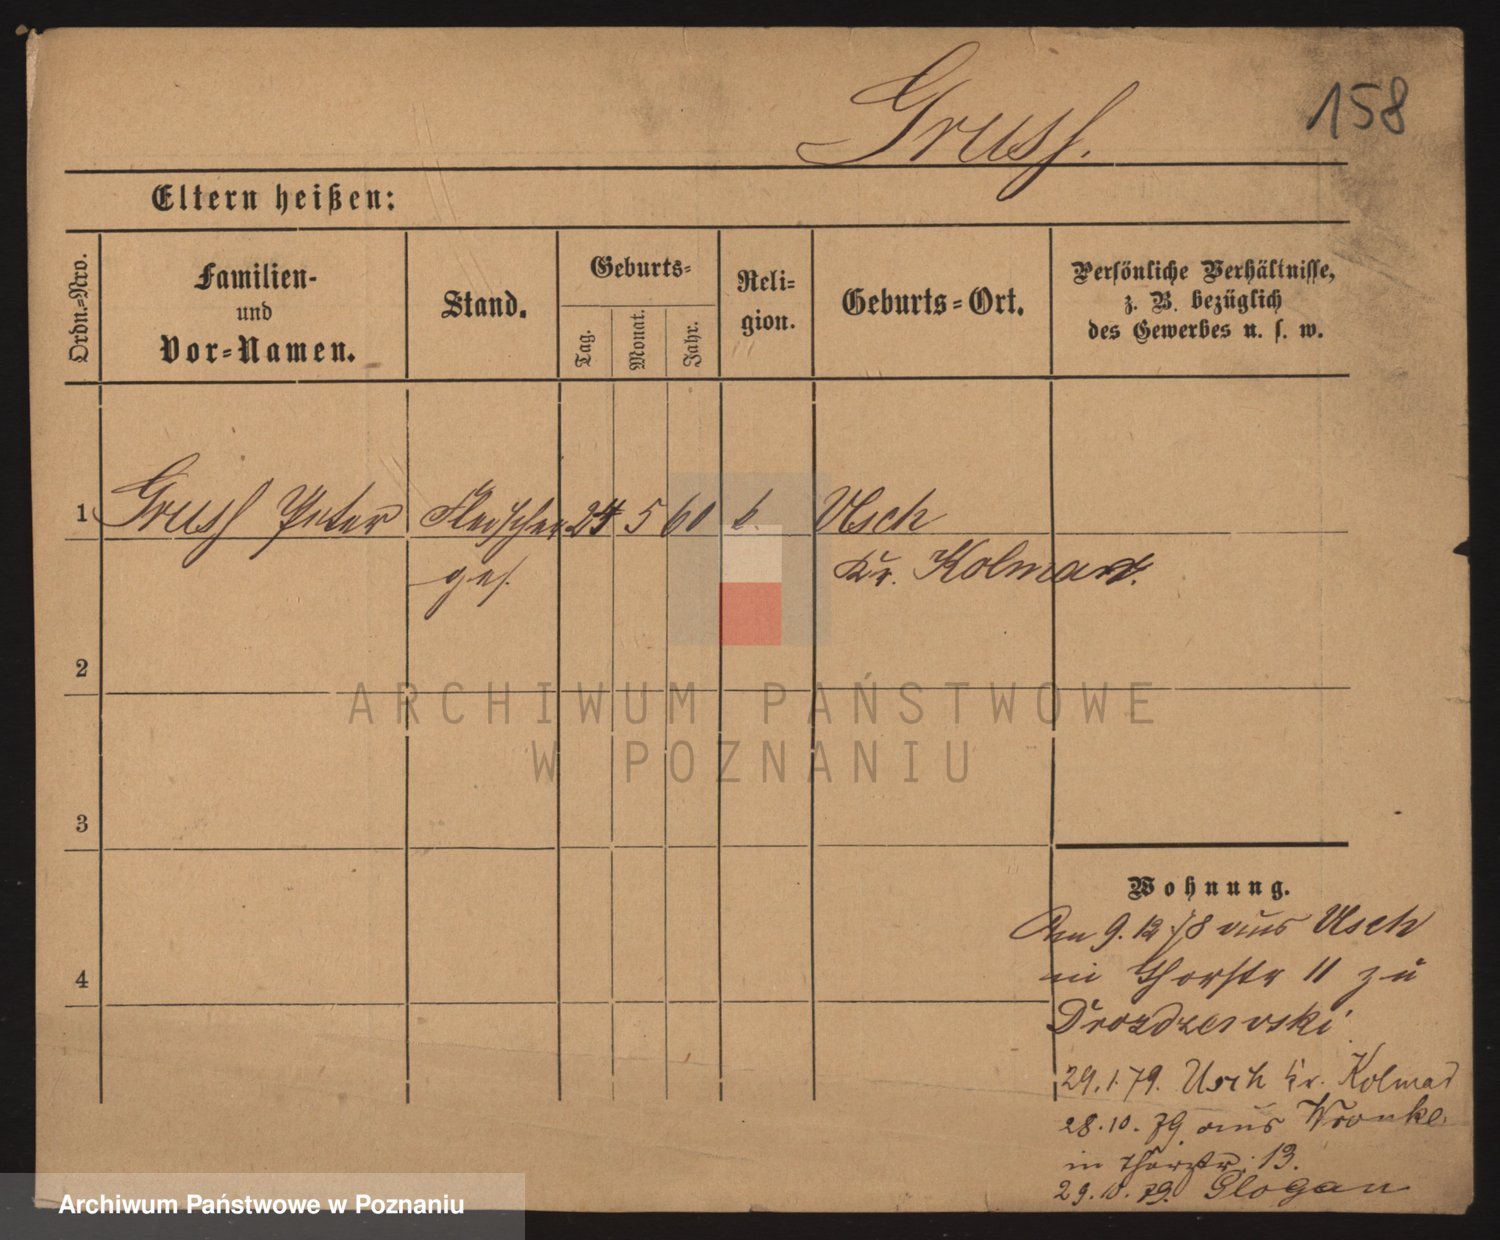 158
Grusch.
Eltern heißen:
Ordn.-Nro.
Familien-
und
Vor-Namen.
Stand.
Geburts-
Tag.
Monat.
Jahr.
Reli-
gion.
Geburts-Ort.
Persönliche Verhältnisse,
z. B. bezüglich
des Gewerbes u. s. w.
1 Peter Fleischer 24 5 60 k. Usch
ges. Kr. Kolmar.
2
ARCHIWUM PAŃSTWOWE
W POZNANIU
3
Wohnung.
Am 9. 12. 78 aus Usch
4
in Thorstr 11 zu
Drozdzewski
29.1.79. Usch Kr. Kolmar
28.10.79 aus Wronke
in Thorstr. 13.
29.10.79. Glogau
Archiwum Państwowe w Poznaniu